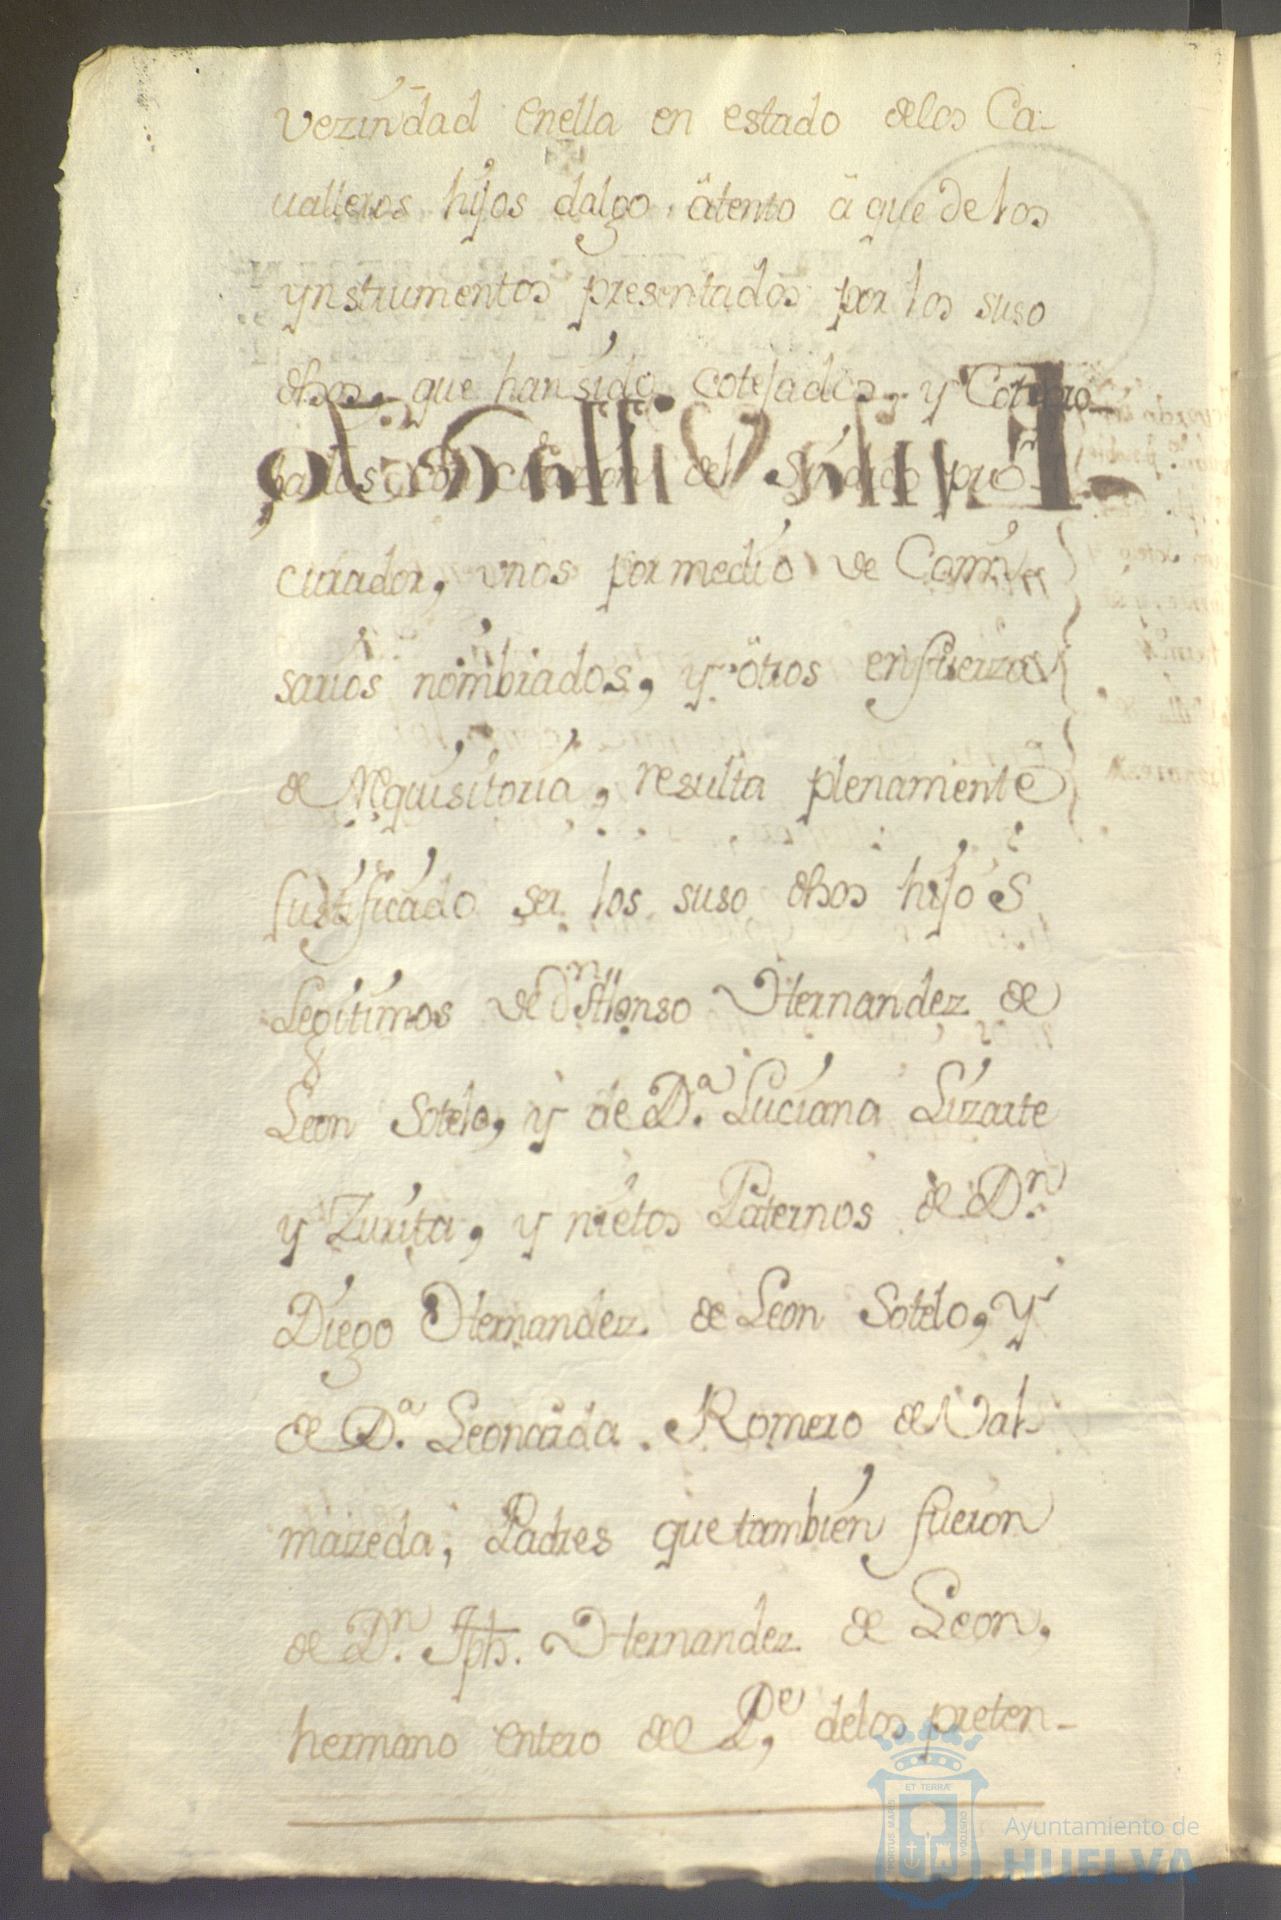 vezindad enella en estado delos Ca-
ualleros hijos dalgo, atento â que de los
ynstrumentos presentados por los suso
dhos, que han sido cotejados, y Compro
bados con citazion del Síndico pro
curador, vnos por medio de Comi
sarios nombrados, y otros en fuerza
de Requisitoria, resulta plenamente
Justificado ser los suso dhos hijos
Legitimos de Dn Alonso Hernandez de
Leon Sotelo, y de D.ª Luciana Lizarte
y Zurita, y nietos Paternos de Dn.
Diego Hernandez de Leon Sotelo, y
de D.ª Leonarda Romero de Val-
mazeda; Padres que tambien fueron
de Dn. Jph. Hernandez de Leon,
hermano entero del Pe, delos preten-
ET TERRÆ
PORTUS MARIS
CUSTODIA
Ayuntamiento de
HUELVA